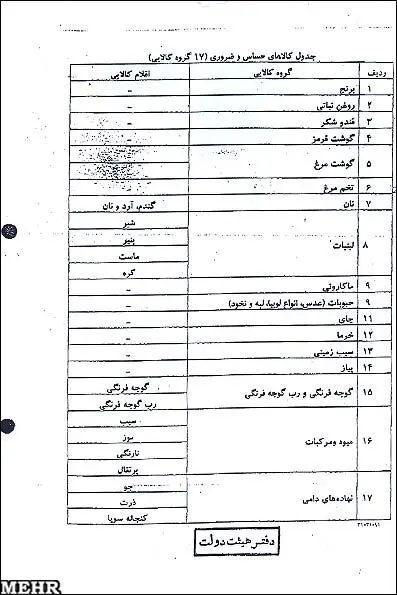 جدول کالاهای حساس و ضروری (۱۷ گروه کالایی)
ردیف گروه کالایی اقلام کالایی
۱ برنج –
۲ روغن نباتی –
۳ قندو شکر –
۴ گوشت قرمز
۵ گوشت مرغ
۶ تخم مرغ –
۷ نان گندم، آرد و نان
۸ لبنیات شیر
پنیر
ماست
کره
۹ ماکارونی –
۹ حبوبات (عدس، انواع لوبیا، لپه و نخود) –
۱۱ چای –
۱۲ خرما –
۱۳ سیب زمینی –
۱۴ پیاز –
۱۵ گوجه فرنگی و رب گوجه فرنگی گوجه فرنگی
رب گوجه فرنگی
۱۶ میوه ومرکبات سیب
موز
نارنگی
پرتقال
۱۷ نهاده‌های دامی جو
ذرت
کنجاله سویا
دفتر هیئت دولت
MEHR